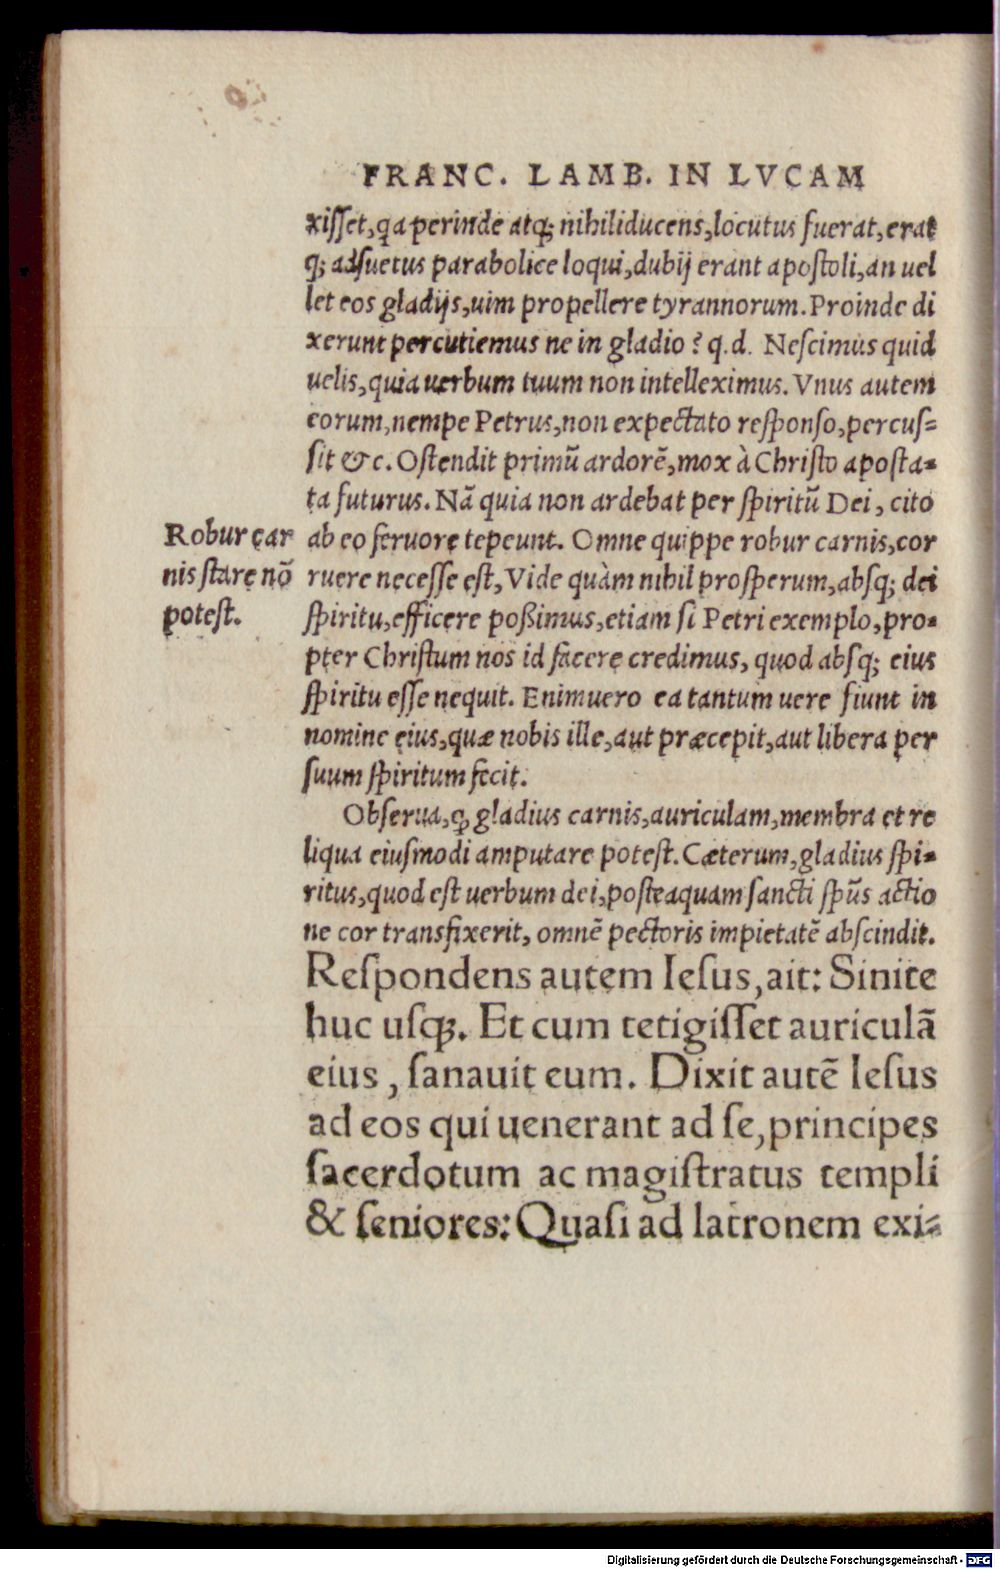 FRANC. LAMB. IN LVCAM
xisset, qa perinde atq; nihiliducens, locutus fuerat, erat
q; adsuetus parabolice loqui, dubij erant apostoli, an uel
let eos gladijs, uim propellere tyrannorum. Proinde di
xerunt percutiemus ne in gladio? q.d. Nescimus quid
uelis, quia uerbum tuum non intelleximus. Vnus autem
eorum, nempe Petrus, non expectato responso, percus-
sit &c. Ostendit primũ ardorẽ, mox à Christo aposta-
ta futurus. Nã quia non ardebat per spiritũ Dei, cito
ab eo feruore tepeunt. Omne quippe robur carnis, cor
ruere necesse est, Vide quàm nihil prosperum, absq; dei
spiritu, efficere poßimus, etiam si Petri exemplo, pro-
pter Christum nos id facere credimus, quod absq; eius
spiritu esse nequit. Enimuero ea tantum uere fiunt in
nomine eius, quæ nobis ille, aut præcepit, aut libera per
suum spiritum fecit.
Robur car
nis stare nõ
potest.
Obserua, ꝙ gladius carnis, auriculam, membra et re
liqua eiusmodi amputare potest. Cæterum, gladius spi-
ritus, quod est uerbum dei, posteaquam sancti spũs actio
ne cor transfixerit, omnẽ pectoris impietatẽ abscindit.
Respondens autem Iesus, ait: Sinite
huc usq;. Et cum tetigisset auriculã
eius, sanauit eum. Dixit autẽ Iesus
ad eos qui uenerant ad se, principes
sacerdotum ac magistratus templi
& seniores: Quasi ad latronem exi-
Digitalisierung gefördert durch die Deutsche Forschungsgemeinschaft - DFG